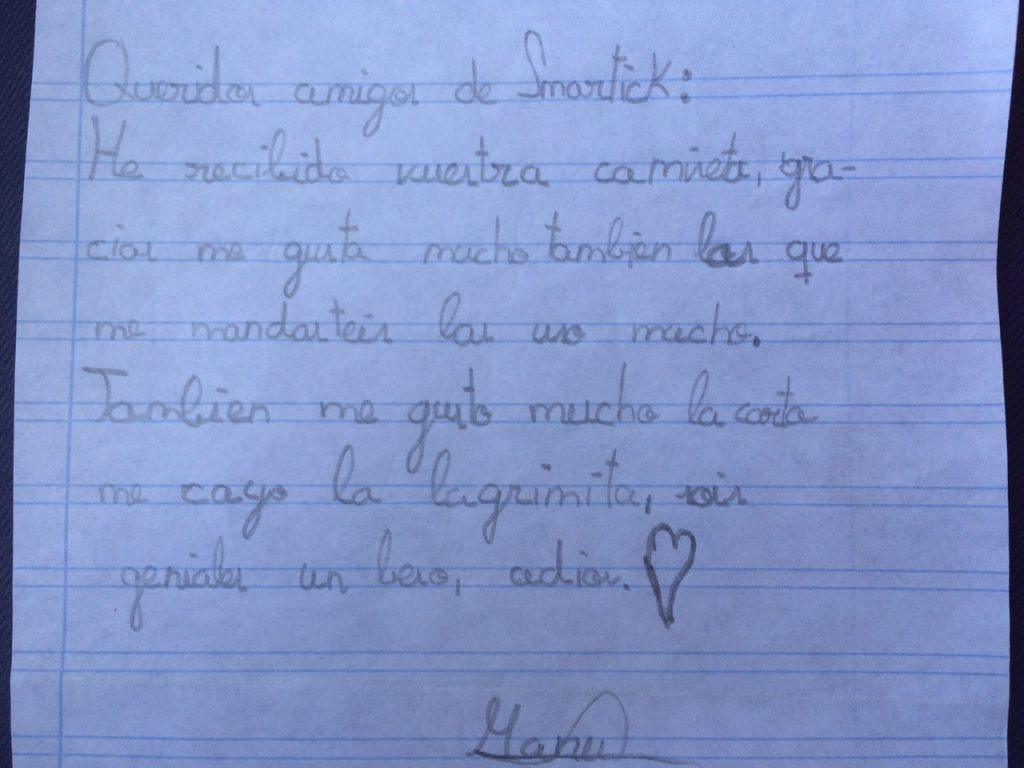 Queridos amigos de Smartick:
He recibido vuestra camiseta, gra-
cias me gusta mucho tambien las que
me mandasteis las uso mucho.
Tambien me gusto mucho la carta
me cayo la lagrimita, sois
geniales un beso, adios.
Manu